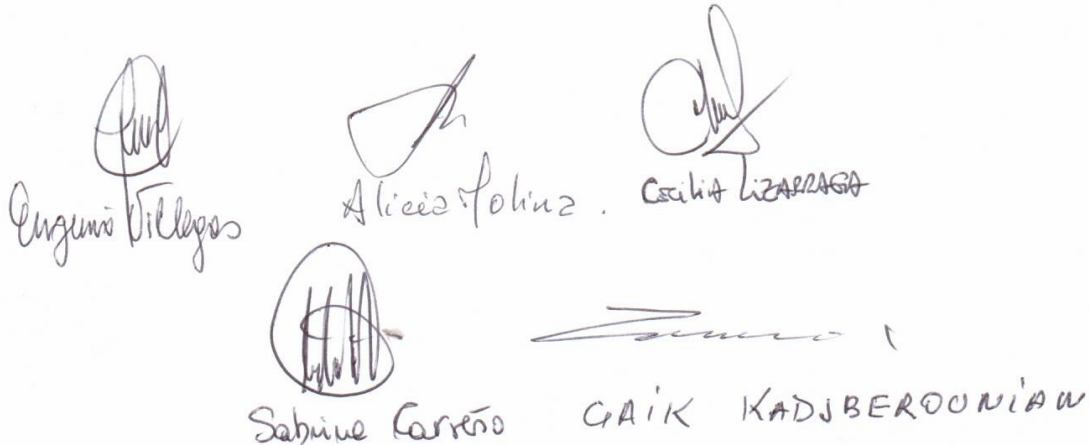 Eugenia Villegas
Alicia Molina.
Cecilia LIZARRAGA
Sabrina Carreño
GAIK KADJBEROUNIAN